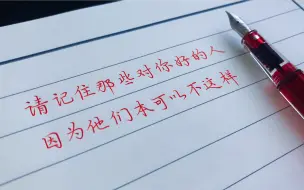 请记住那些对你好的人
因为他们本可以不这样